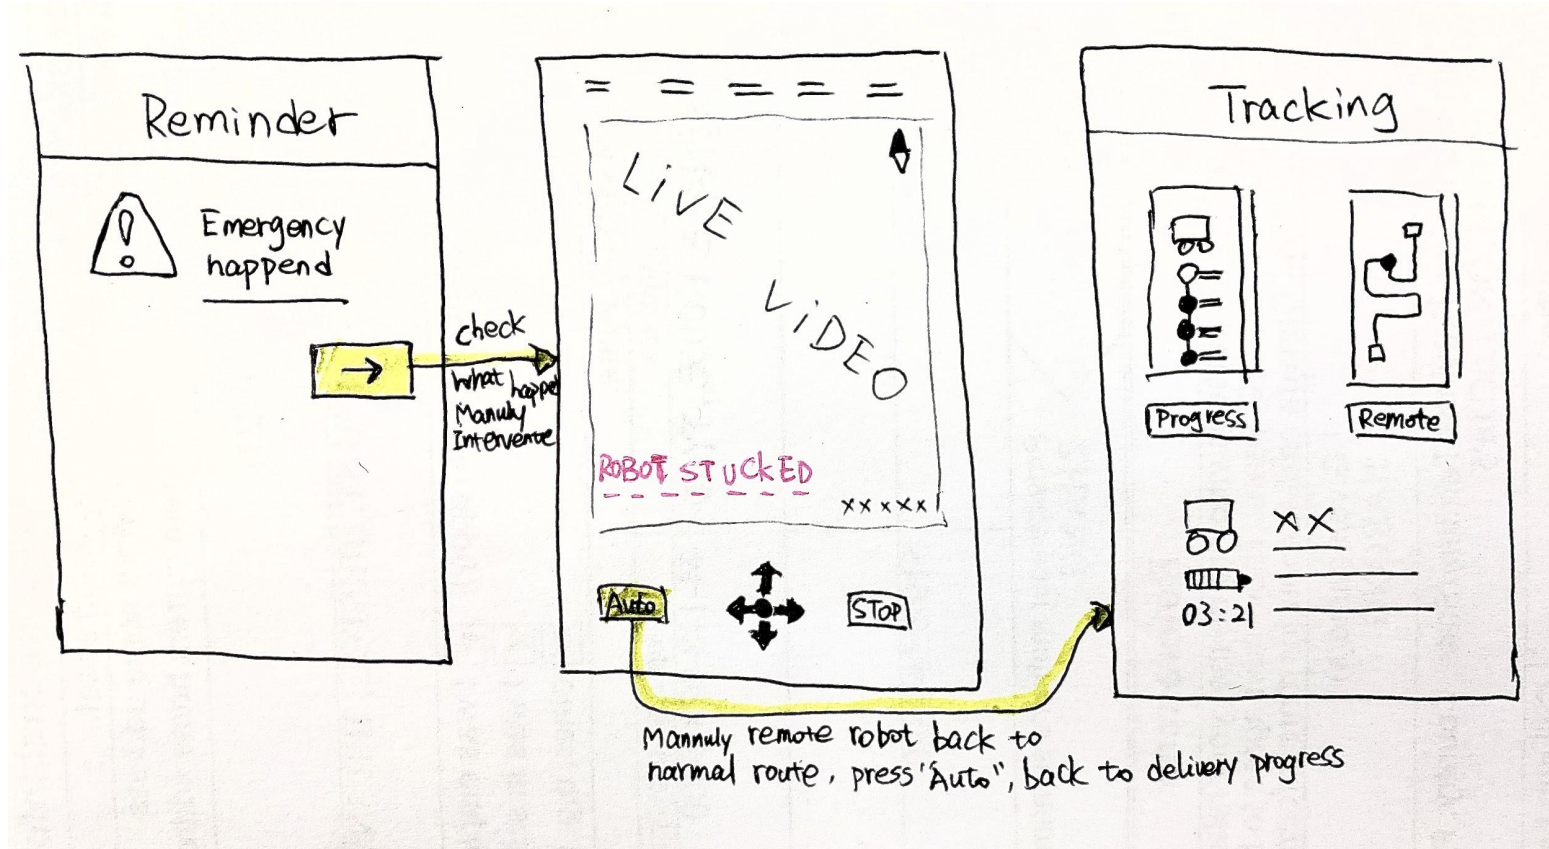 Reminder
Emergency
happend
→
check
what happe
Manuly
Intervente
LiVE
ViDEO
ROBOT STUCKED
xxxxx
Auto
STOP
Mannuly remote robot back to
normal route, press "Auto", back to delivery progress
Tracking
Progress
Remote
XX
03:21